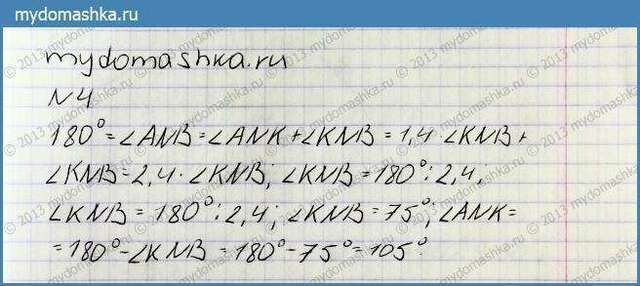 mydomashka.ru
mydomashka.ru
N4
180° = ∠ANB = ∠ANK + ∠KNB = 1,4 · ∠KNB +
∠KNB = 2,4 · ∠KNB; ∠KNB = 180° : 2,4.
∠KNB = 180° : 2,4; ∠KNB = 75°; ∠ANK =
= 180° - ∠KNB = 180° - 75° = 105°.
© 2013 mydomashka.ru